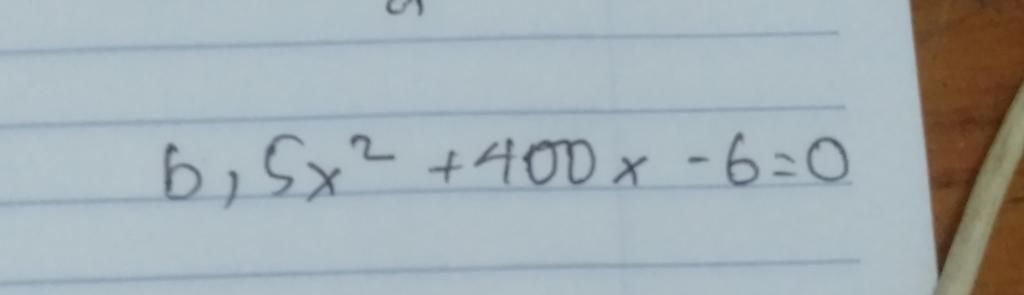 b, 5x² + 400x - 6 = 0